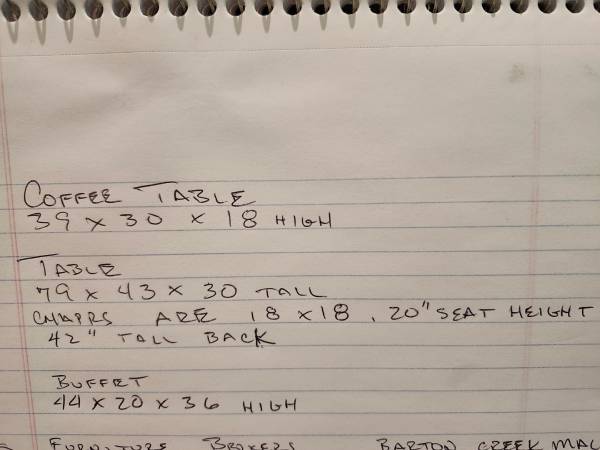 COFFEE TABLE
39 x 30 x 18 HIGH
TABLE
79 x 43 x 30 TALL
CHAIRS ARE 18 x 18, 20" SEAT HEIGHT
42" TALL BACK
BUFFET
44 x 20 x 36 HIGH
FURNITURE BROKERS BARTON CREEK MALL